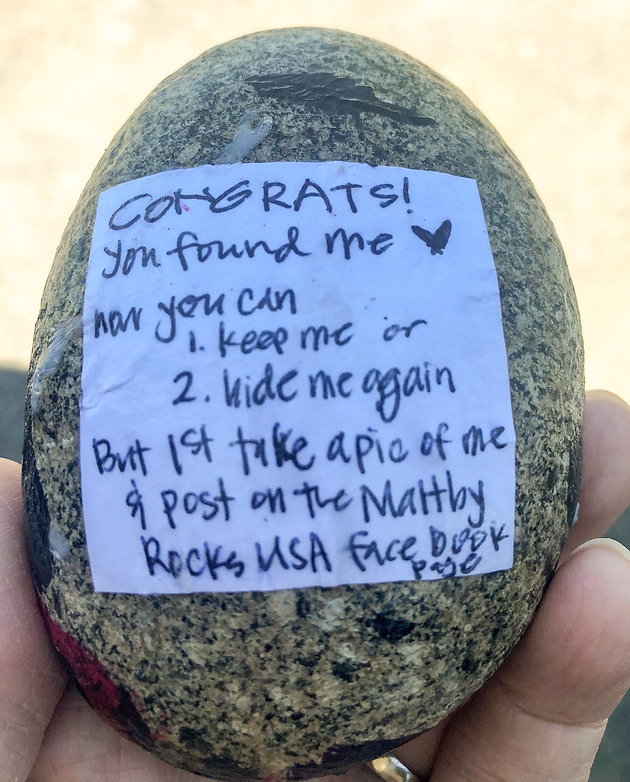 CONGRATS!
you found me ♥
now you can
1. keep me or
2. hide me again
But 1st take a pic of me
& post on the Maltby
Rocks USA Face book
page